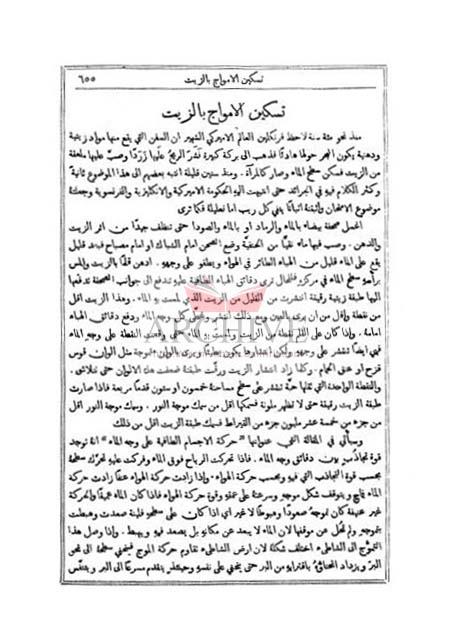 تسكين الامواج بالزيت ٦٥٥
تسكين الامواج بالزيت
منذ نحو مئة سنة لاحظ فرنكلين العالم الاميركي الشهير ان السفن التي يقع منها مواد زيتية
ودهنية يكون البحر حولها هادئًا فذهب الى بركة كبيرة نشر الريح عليها زردًا وصب عليها ملعقة
من الزيت فسكن سطح الماء وصار كالمرآة. ومنذ سنين قليلة انتبه بعضهم الى هذا الموضوع ثانية
وكثر الكلام فيه في الجرائد حتى انتبهت اليه الحكومة الاميركية والانكليزية والفرنسوية وجعلتهُ
موضوع الامتحان وأثبتتهُ اثباتًا ينفي كل ريب اما تعليلهُ فكما ترى
اغسل صحفة بيضاء بالماء والرماد او بالماء والصودا حتى تنظف جيدًا من اثر الزيت
والدهن. وصب فيها ماء نقيًا من الحنفية وضع الصحن امام الشباك او امام مصباح فبعد قليل
يقع على الماء قليل من الهباء الطائر في الهواء ويطفو على وجههِ. ادهن قلمًا بالزيت والمس
برأسهِ سطح الماء في مركزهِ فللحال ترى دقائق الهباء الطافية عليهِ تندفع الى جوانب الصحفة تدفعها
اليها طبقة زيتية رقيقة انتشرت من القليل من الزيت الذي لمست بهِ الماء. وهذا الزيت اقل
من نقطة واقل من ان يرى بالعين ومع ذلك انتشر وغطى كل وجه الماء ودفع دقائق الهباء
امامهُ. واذا كان على القلم نقطة من الزيت ولمست بهِ الماء حتى وقعت النقطة على وجه الماء
فهي ايضًا تنتشر على وجههِ ولكن انتشارها يكون بطيئًا ويرى بالوان متموجة مثل الوان قوس
قزح او عنق الحمام. وكلما زاد انتشار الزيت ورقّت طبقتهُ ضعفت هذه الالوان حتى تتلاشى.
والنقطة الواحدة التي ثقلها حبّة تنتشر على سطح مساحتهُ خمسون او ستون قدمًا مربعة فاذا صارت
طبقة الزيت رقيقة حتى لا تظهر ملونة فسمكها اقل من سمك موجة النور. وسمك موجة النور اقل
من جزء من خمسة عشر مليون جزء من القيراط فسمك طبقة الزيت اقل من ذلك
وسيأتي في المقالة التي عنوانها "حركة الاجسام الطافية على وجه الماء" انهُ توجد
قوة تجاذب بين دقائق وجه الماء. فاذا تحركت الرياح فوق الماء وفركت عليهِ تحرّك سطحهُ
بحسب قوة التجاذب التي فيهِ وبحسب حركة الهواء. واذا زادت حركة الهواء عنفًا زادت حركة
الماء تموّج ويتوقف شكل موجهِ وسرعتهُ على عمقهِ وقوة حركة الهواء فاذا كان الماء عميقًا والحركة
غير عنيفة كان تموجهُ صعودًا وهبوطًا لا غير اي اذا كان على سطحهِ فلينة صعدت وهبطت
بتموجهِ ولم تنتقل عن موقفها لان الماء لا يبعد عن مكانهِ بل يصعد فيهِ ويهبط. واذا وصل هذا
التموّج الى الشاطئ اختلف شكلهُ لان ارض الشاطئ تقاوم حركة الموج فينحني سطحهُ الى نحو
البر ويزداد انحناؤهُ باقترابهِ من البر حتى ينحني على نفسهِ وحينئذٍ يتقدم مسرعًا الى البر ويتنفّس
ARCHIVE